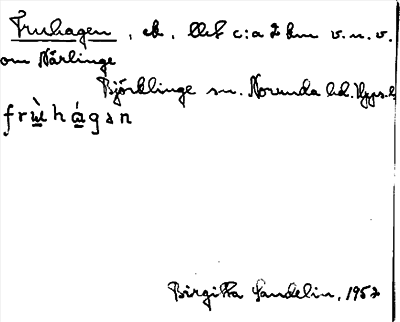 Fruhagen, ek, blek c:a 2 km v.n.v.
om Närlinge
Björklinge sn. Norunda hd. Upps.l.
frù̱há̱gən
Birgitta Sandelin, 1952